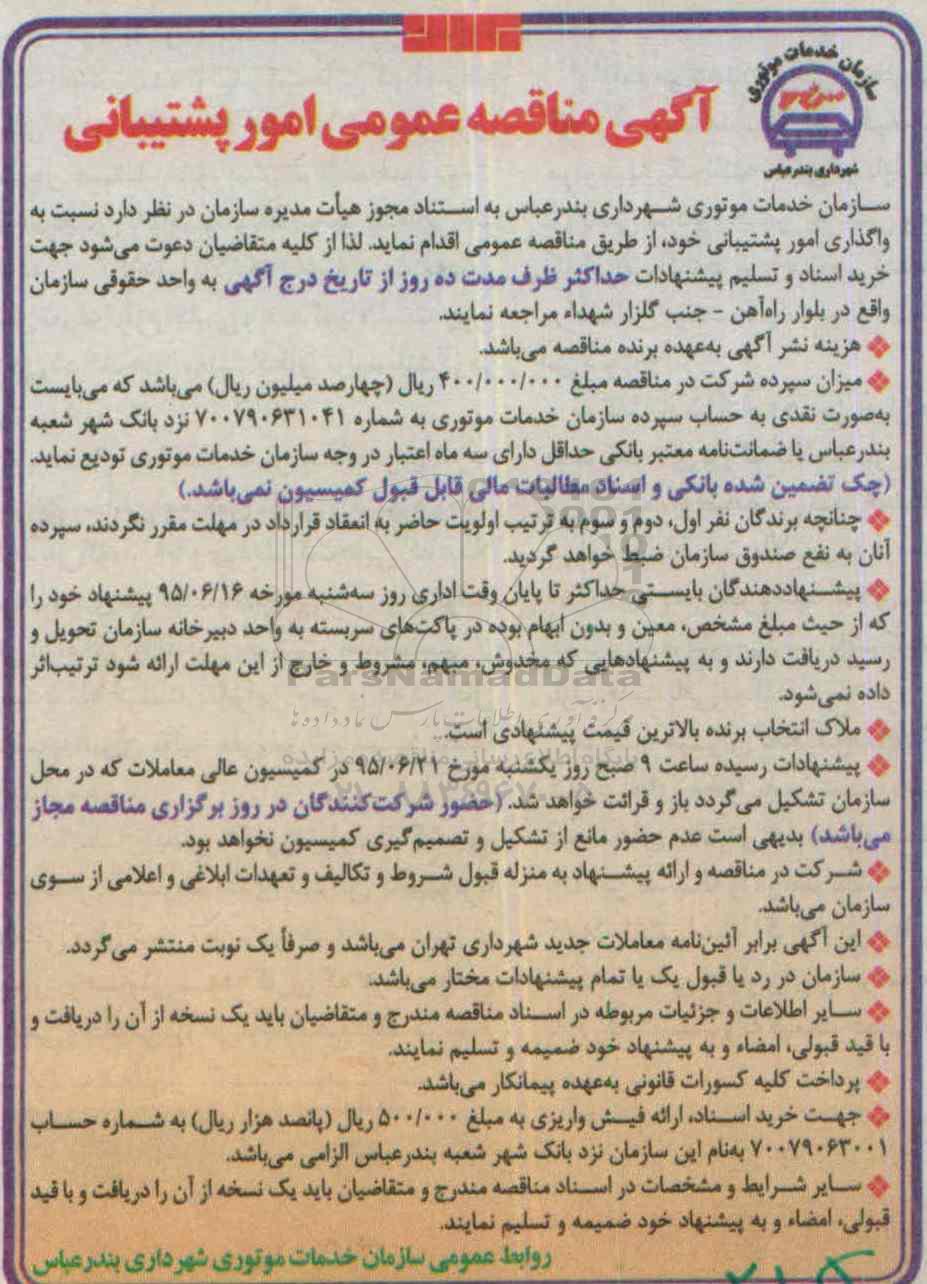 سازمان خدمات موتوری
شهرداری بندرعباس
آگهی مناقصه عمومی امور پشتیبانی
سازمان خدمات موتوری شهرداری بندرعباس به استناد مجوز هیأت مدیره سازمان در نظر دارد نسبت به
واگذاری امور پشتیبانی خود، از طریق مناقصه عمومی اقدام نماید. لذا از کلیه متقاضیان دعوت می‌شود جهت
خرید اسناد و تسلیم پیشنهادات حداکثر ظرف مدت ده روز از تاریخ درج آگهی به واحد حقوقی سازمان
واقع در بلوار راه‌آهن - جنب گلزار شهداء مراجعه نمایند.
هزینه نشر آگهی به‌عهده برنده مناقصه می‌باشد.
میزان سپرده شرکت در مناقصه مبلغ ۴۰۰/۰۰۰/۰۰۰ ریال (چهارصد میلیون ریال) می‌باشد که می‌بایست
به‌صورت نقدی به حساب سپرده سازمان خدمات موتوری به شماره ۷۰۰۷۹۰۶۳۱۰۴۱ نزد بانک شهر شعبه
بندرعباس یا ضمانت‌نامه معتبر بانکی حداقل دارای سه ماه اعتبار در وجه سازمان خدمات موتوری تودیع نماید.
(چک تضمین شده بانکی و اسناد مطالبات مالی قابل قبول کمیسیون نمی‌باشد.)
چنانچه برندگان نفر اول، دوم و سوم به ترتیب اولویت حاضر به انعقاد قرارداد در مهلت مقرر نگردند، سپرده
آنان به نفع صندوق سازمان ضبط خواهد گردید.
پیشنهاددهندگان بایستی حداکثر تا پایان وقت اداری روز سه‌شنبه مورخه ۹۵/۰۶/۱۶ پیشنهاد خود را
که از حیث مبلغ مشخص، معین و بدون ابهام بوده در پاکت‌های سربسته به واحد دبیرخانه سازمان تحویل و
رسید دریافت دارند و به پیشنهادهایی که مخدوش، مبهم، مشروط و خارج از این مهلت ارائه شود ترتیب‌اثر
ParsNamadData
داده نمی‌شود.
گردآوری اطلاعات پارس نماد داده‌ها
ملاک انتخاب برنده بالاترین قیمت پیشنهادی است.
پیشنهادات رسیده ساعت ۹ صبح روز یکشنبه مورخ ۹۵/۰۶/۲۱ در کمیسیون عالی معاملات که در محل
سازمان تشکیل می‌گردد باز و قرائت خواهد شد. (حضور شرکت‌کنندگان در روز برگزاری مناقصه مجاز
می‌باشد) بدیهی است عدم حضور مانع از تشکیل و تصمیم‌گیری کمیسیون نخواهد بود.
شرکت در مناقصه و ارائه پیشنهاد به منزله قبول شروط و تکالیف و تعهدات ابلاغی و اعلامی از سوی
سازمان می‌باشد.
این آگهی برابر آئین‌نامه معاملات جدید شهرداری تهران می‌باشد و صرفاً یک نوبت منتشر می‌گردد.
سازمان در رد یا قبول یک یا تمام پیشنهادات مختار می‌باشد.
سایر اطلاعات و جزئیات مربوطه در اسناد مناقصه مندرج و متقاضیان باید یک نسخه از آن را دریافت و
با قید قبولی، امضاء و به پیشنهاد خود ضمیمه و تسلیم نمایند.
پرداخت کلیه کسورات قانونی به‌عهده پیمانکار می‌باشد.
جهت خرید اسناد، ارائه فیش واریزی به مبلغ ۵۰۰/۰۰۰ ریال (پانصد هزار ریال) به شماره حساب
۷۰۰۷۹۰۶۳۰۰۱ به‌نام این سازمان نزد بانک شهر شعبه بندرعباس الزامی می‌باشد.
سایر شرایط و مشخصات در اسناد مناقصه مندرج و متقاضیان باید یک نسخه از آن را دریافت و با قید
قبولی، امضاء و به پیشنهاد خود ضمیمه و تسلیم نمایند.
روابط عمومی سازمان خدمات موتوری شهرداری بندرعباس